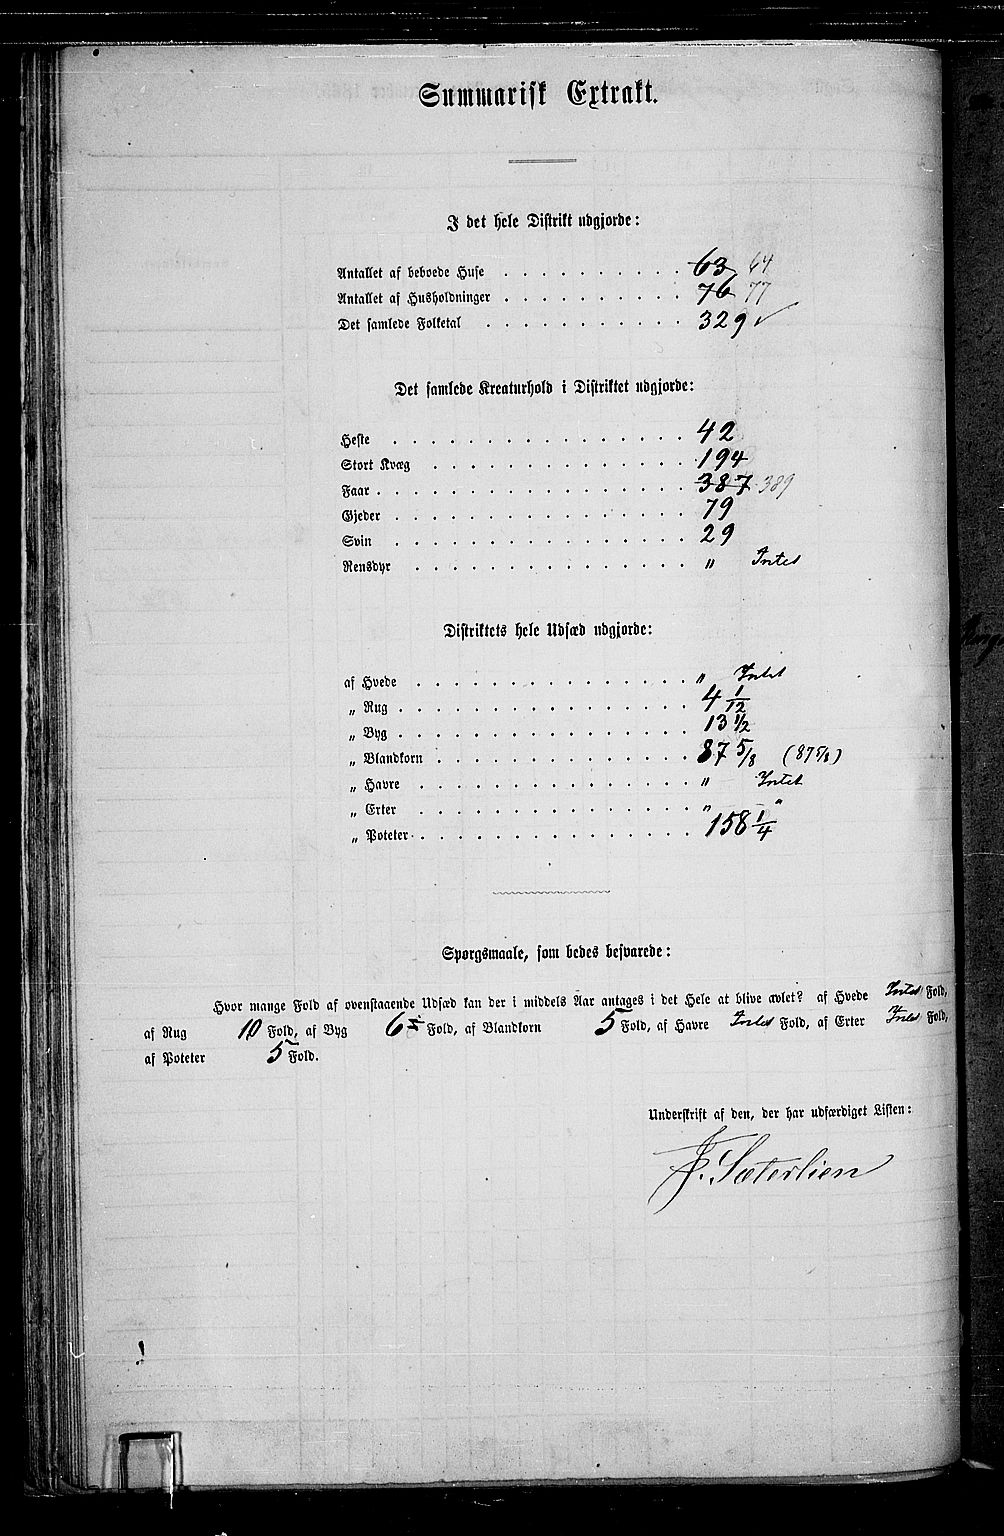 Summarisk Extrakt.
I det hele Distrikt udgjorde:
Antallet af beboede Huse . . . . . . . . . . 63 64
Antallet af Husholdninger . . . . . . . . . . 76 77
Det samlede Folketal . . . . . . . . . . . 329 ✓
Det samlede Kreaturhold i Distriktet udgjorde:
Heste . . . . . . . . . . . . . . . . 42
Stort Kvæg . . . . . . . . . . . . . . 194
Faar . . . . . . . . . . . . . . . . . 387 389
Gjeder . . . . . . . . . . . . . . . . 79
Svin . . . . . . . . . . . . . . . . 29
Rensdyr . . . . . . . . . . . . . . . „ Intet
Distriktets hele Udsæd udgjorde:
af Hvede . . . . . . . . . . . . . . . „ Intet
„ Rug . . . . . . . . . . . . . . . . 4 1/12
„ Byg . . . . . . . . . . . . . . . . 13 1/2
„ Blandkorn . . . . . . . . . . . . . . 87 5/8 (87 5/8)
„ Havre . . . . . . . . . . . . . . . „ Intet
„ Erter . . . . . . . . . . . . . . . „ „
„ Poteter . . . . . . . . . . . . . . . 158 1/4
Spørgsmaale, som bedes besvarede:
Hvor mange Fold af ovenstaaende Udsæd kan der i middels Aar antages i det Hele at blive avlet? af Hvede Intet Fold,
af Rug 10 Fold, af Byg 6 Fold, af Blandkorn 5 Fold, af Havre Intet Fold, af Erter Intet Fold,
af Poteter 5 Fold.
Underskrift af den, der har udfærdiget Listen:
J. Sæterlien